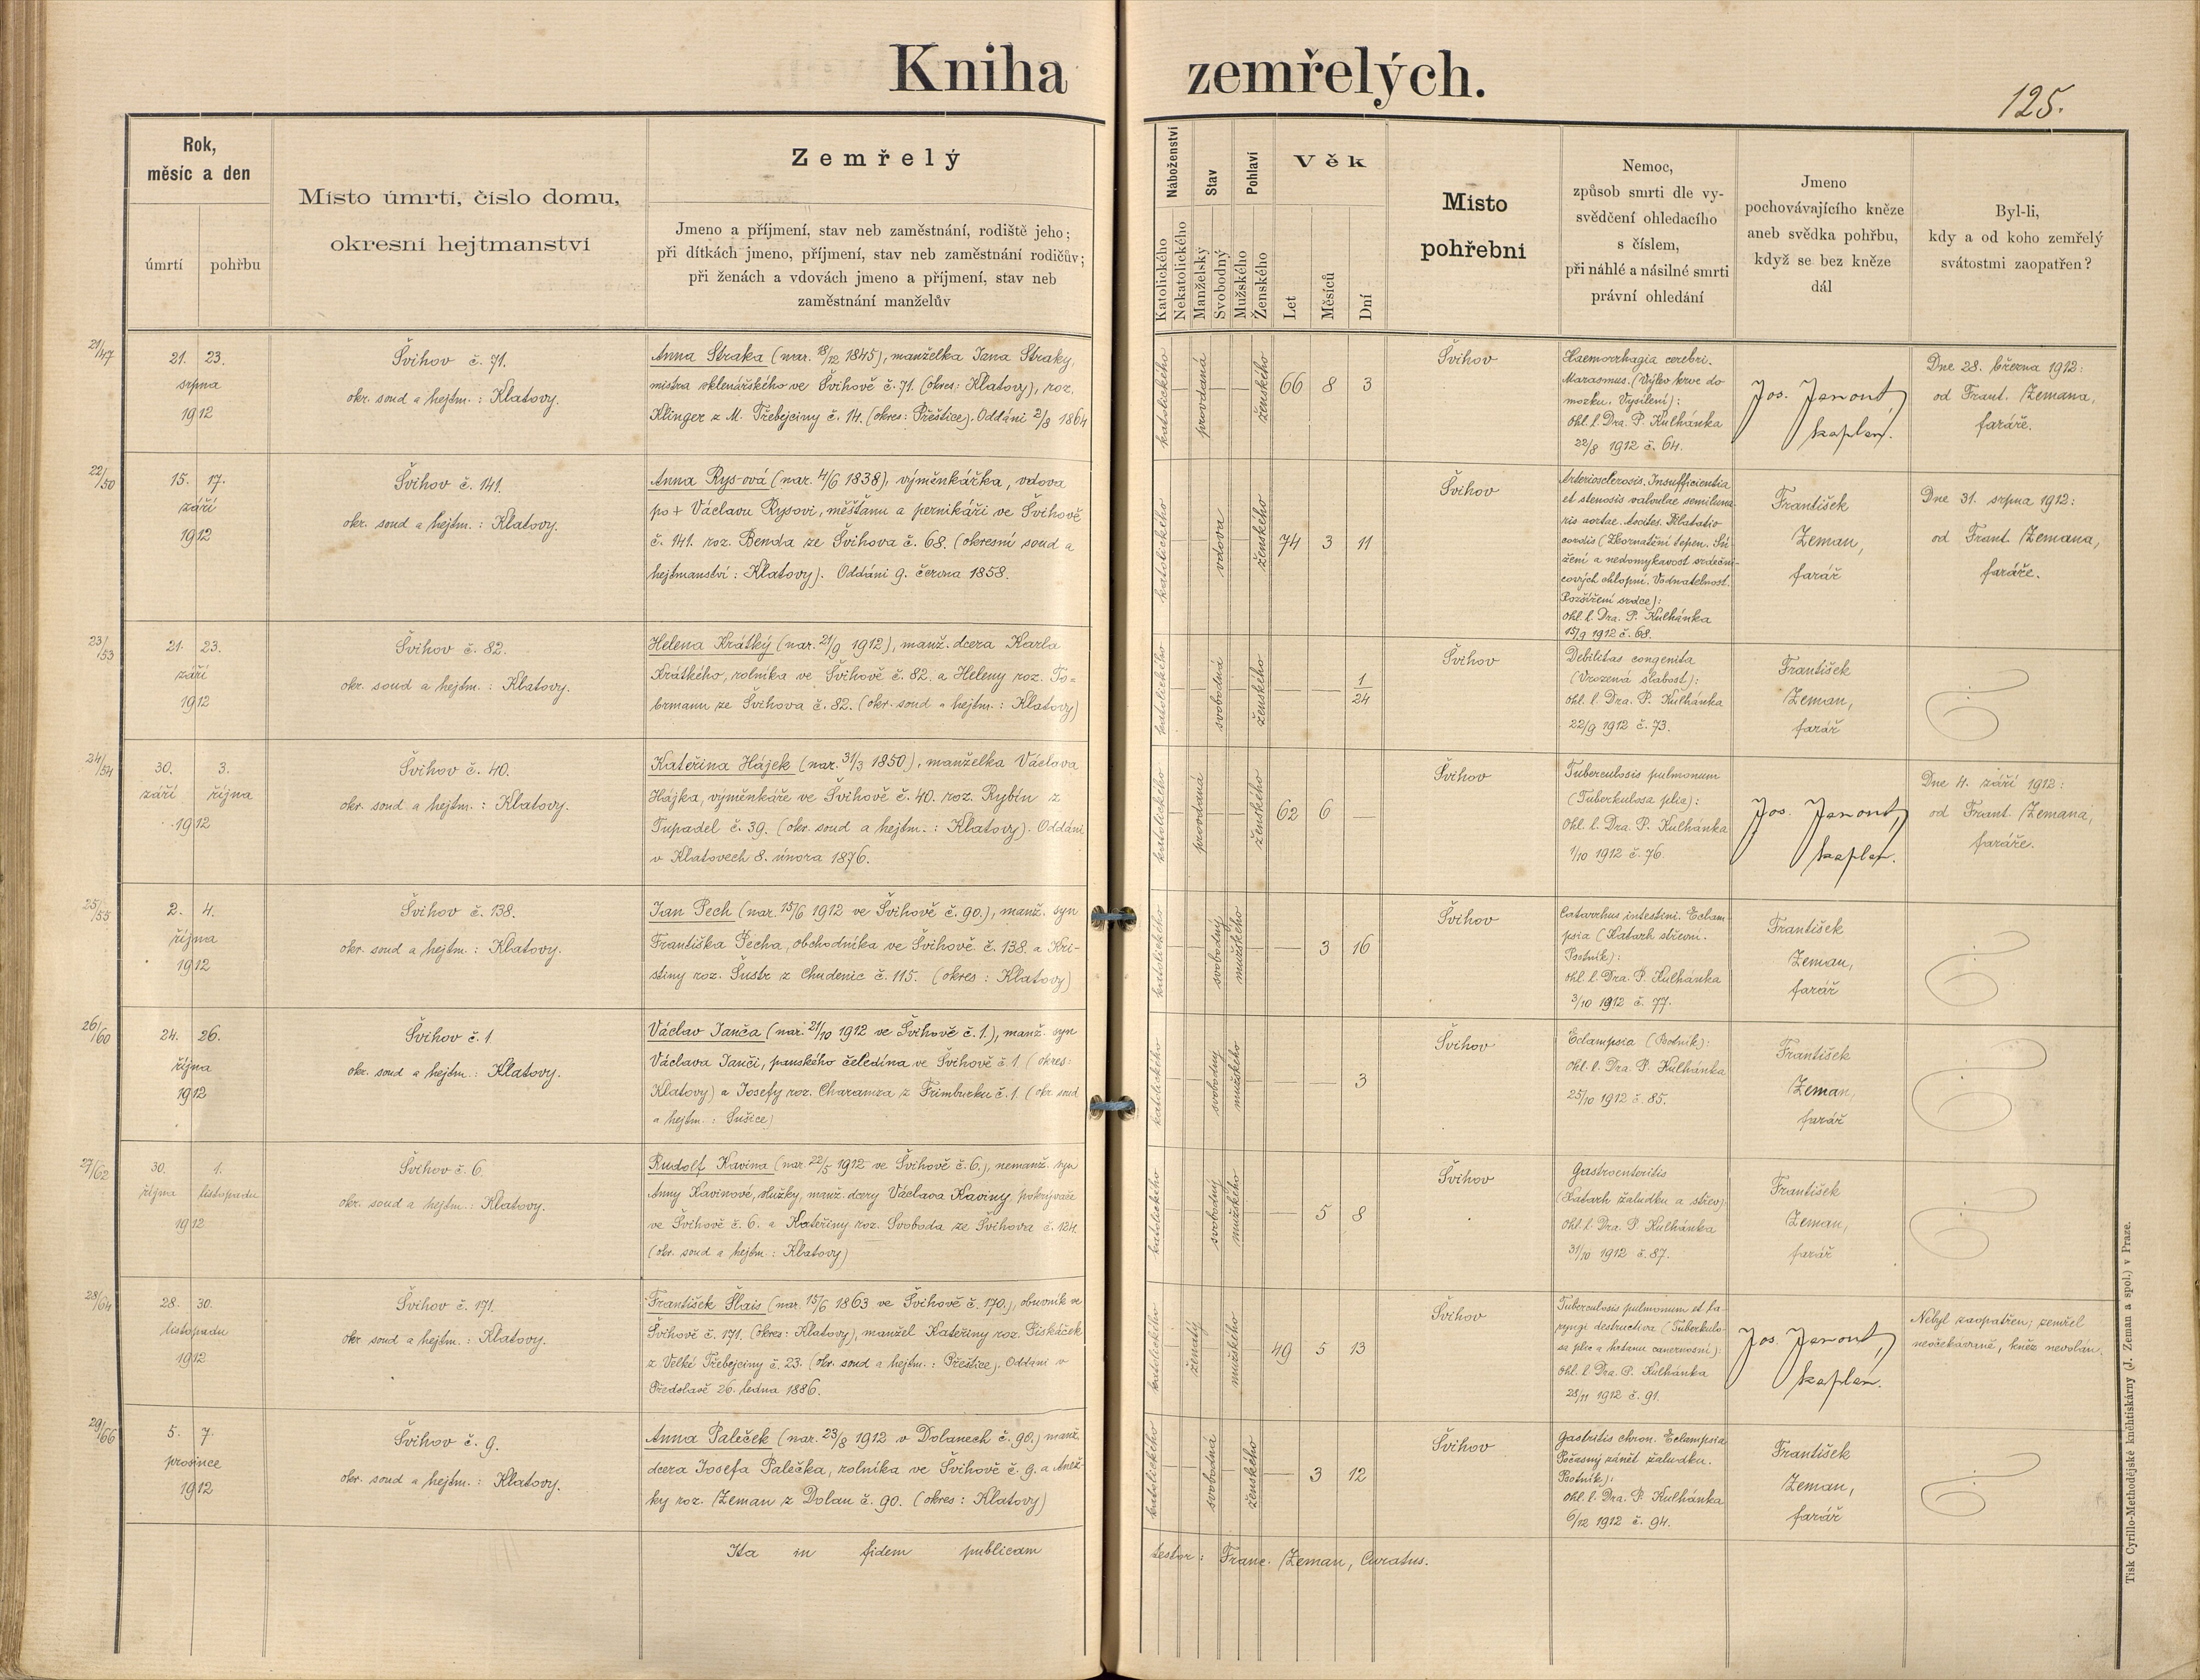 Kniha zemřelých.
125.
Rok,
měsíc a den
úmrtí
pohřbu
Místo úmrtí, číslo domu,
okresní hejtmanství
Zemřelý
Jmeno a příjmení, stav neb zaměstnání, rodiště jeho;
při dítkách jmeno, příjmení, stav neb zaměstnání rodičův;
při ženách a vdovách jmeno a příjmení, stav neb
zaměstnání manželův
Náboženství
Katolického
Nekatolického
Stav
Manželský
Svobodný
Pohlaví
Mužského
Ženského
Věk
Let
Měsíců
Dní
Místo
pohřební
Nemoc,
způsob smrti dle vy-
svědčení ohledacího
s číslem,
při náhlé a násilné smrti
právní ohledání
Jmeno
pochovávajícího kněze
aneb svědka pohřbu,
když se bez kněze
dál
Byl-li,
kdy a od koho zemřelý
svátostmi zaopatřen?
21/47
21. 23.
srpna
1912
Švihov č. 71.
okr. soud a hejtm.: Klatovy.
Anna Straka (nar. 18/12 1845), manželka Jana Straky,
mistra sklenářského ve Švihově č. 71. (okres: Klatovy), roz.
Klinger z M. Třebejciny č. 14. (okres: Přeštice). Oddáni 2/8 1864
katolického
provdaná
ženského
66 8 3
Švihov
Haemorrhagia cerebri.
Marasmus. (Výlev krve do
mozku. Vysílení):
ohl. l. Dra. P. Kulhánka
22/8 1912 č. 64.
Jos. Janout,
kaplan.
Dne 28. března 1912:
od Frant. Zemana,
faráře.
22/50
15. 17.
září
1912
Švihov č. 141.
okr. soud a hejtm.: Klatovy.
Anna Rys-ová (nar. 4/6 1838), výměnkářka, vdova
po + Václavu Rysovi, měšťanu a pernikáři ve Švihově
č. 141. roz. Benda ze Švihova č. 68. (okresní soud a
hejtmanství: Klatovy). Oddáni 9. června 1858.
katolického
vdova
ženského
74 3 11
Švihov
Arteriosclerosis. Insufficientia
et stenosis valvulae semiluna-
ris aortae. Ascites. Dilatatio
cordis (Zkornatění tepen. Sú-
žení a nedomykavost srdečni-
cových chlopní. Vodnatelnost.
Rozšíření srdce):
ohl. l. Dra. P. Kulhánka
15/9 1912 č. 68.
František
Zeman,
farář
Dne 31. srpna 1912:
od Frant. Zemana,
faráře.
23/53
21. 23.
září
1912
Švihov č. 82.
okr. soud a hejtm.: Klatovy.
Helena Krátký (nar. 21/9 1912), manž. dcera Karla
Krátkého, rolníka ve Švihově č. 82. a Heleny roz. To=
brmann ze Švihova č. 82. (okr. soud a hejtm.: Klatovy)
katolického
svobodná
ženského
1/24
Švihov
Debilitas congenita
(Vrozená slabost):
ohl. l. Dra. P. Kulhánka
22/9 1912 č. 73.
František
Zeman,
farář
24/54
30. 3.
září října
1912
Švihov č. 40.
okr. soud a hejtm.: Klatovy.
Kateřina Hájek (nar. 31/3 1850), manželka Václava
Hájka, výměnkáře ve Švihově č. 40. roz. Rybín z
Tupadel č. 39. (okr. soud a hejtm.: Klatovy). Oddáni
v Klatovech 8. února 1876.
katolického
provdaná
ženského
62 6 —
Švihov
Tuberculosis pulmonum
(Tuberkulosa plic):
ohl. l. Dra. P. Kulhánka
1/10 1912 č. 76.
Jos. Janout,
kaplan.
Dne 4. září 1912:
od Frant. Zemana,
faráře.
25/55
2. 4.
října
1912
Švihov č. 138.
okr. soud a hejtm.: Klatovy.
Jan Pech (nar. 15/6 1912 ve Švihově č. 90.), manž. syn
Františka Pecha, obchodníka ve Švihově č. 138. a Kri-
stiny roz. Šustr z Chudenic č. 115. (okres: Klatovy)
katolického
svobodný
mužského
3 16
Švihov
Catarrhus intestini. Eclam
psia (Katarh střevní.
Psotník):
ohl. l. Dra. P. Kulhánka
3/10 1912 č. 77.
František
Zeman,
farář
26/60
24. 26.
října
1912
Švihov č. 1
okr. soud a hejtm.: Klatovy.
Václav Janča (nar. 21/10 1912 ve Švihově č. 1.), manž. syn
Václava Janči, panského čeledína ve Švihově č. 1 (okres:
Klatovy) a Josefy roz. Charamza z Frimburku č. 1. (okr. soud
a hejtm.: Sušice)
katolického
svobodný
mužského
3
Švihov
Eclampsia (Psotník):
ohl. l. Dra. P. Kulhánka
25/10 1912 č. 85.
František
Zeman,
farář
27/62
30. 1.
října listopadu
1912
Švihov č. 6
okr. soud a hejtm.: Klatovy.
Rudolf Kavina (nar. 22/5 1912 ve Švihově č. 6.), nemanž. syn
Anny Kavinové, služky, manž. dcery Václava Kaviny, pokrývače
ve Švihově č. 6. a Kateřiny roz. Svoboda ze Švihova č. 124.
(okr. soud a hejtm.: Klatovy)
katolického
svobodný
mužského
5 8
Švihov
Gastroenteritis
(Katarh žaludku a střev):
ohl. l. Dra. P. Kulhánka
31/10 1912 č. 87.
František
Zeman,
farář
28/64
28. 30.
listopadu
1912
Švihov č. 171.
okr. soud a hejtm.: Klatovy.
František Šlais (nar. 15/6 1863 ve Švihově č. 170.), obuvník ve
Švihově č. 171. (okres: Klatovy), manžel Kateřiny roz. Piskáček
z Velké Třebejciny č. 23. (okr. soud a hejtm.: Přeštice). Oddáni v
Předslavě 26. ledna 1886.
katolického
ženatý
mužského
49 5 13
Švihov
Tuberculosis pulmonum et la-
ryngi destructiva (Tuberkulo-
sa plic a hrtanu cavernosní):
ohl. l. Dra. P. Kulhánka
28/11 1912 č. 91.
Jos. Janout,
kaplan.
Nebyl zaopatřen; zemřel
neočekávaně, kněz nevolán.
29/66
5. 7.
prosince
1912
Švihov č. 9.
okr. soud a hejtm.: Klatovy.
Anna Paleček (nar. 23/8 1912 v Dolanech č. 90.) manž.
dcera Josefa Palečka, rolníka ve Švihově č. 9. a Anež-
ky roz. Zeman z Dolan č. 90. (okres: Klatovy)
katolického
svobodná
ženského
3 12
Švihov
Gastritis chron. Eclampsia
Počasný zánět žaludku.
Psotník):
ohl. l. Dra. P. Kulhánka
6/12 1912 č. 94.
František
Zeman,
farář
Ita in fidem publicam testor: Franc. Zeman, Curatus.
Tisk Cyrillo-Methodějské knihtiskárny (J. Zeman a spol.) v Praze.